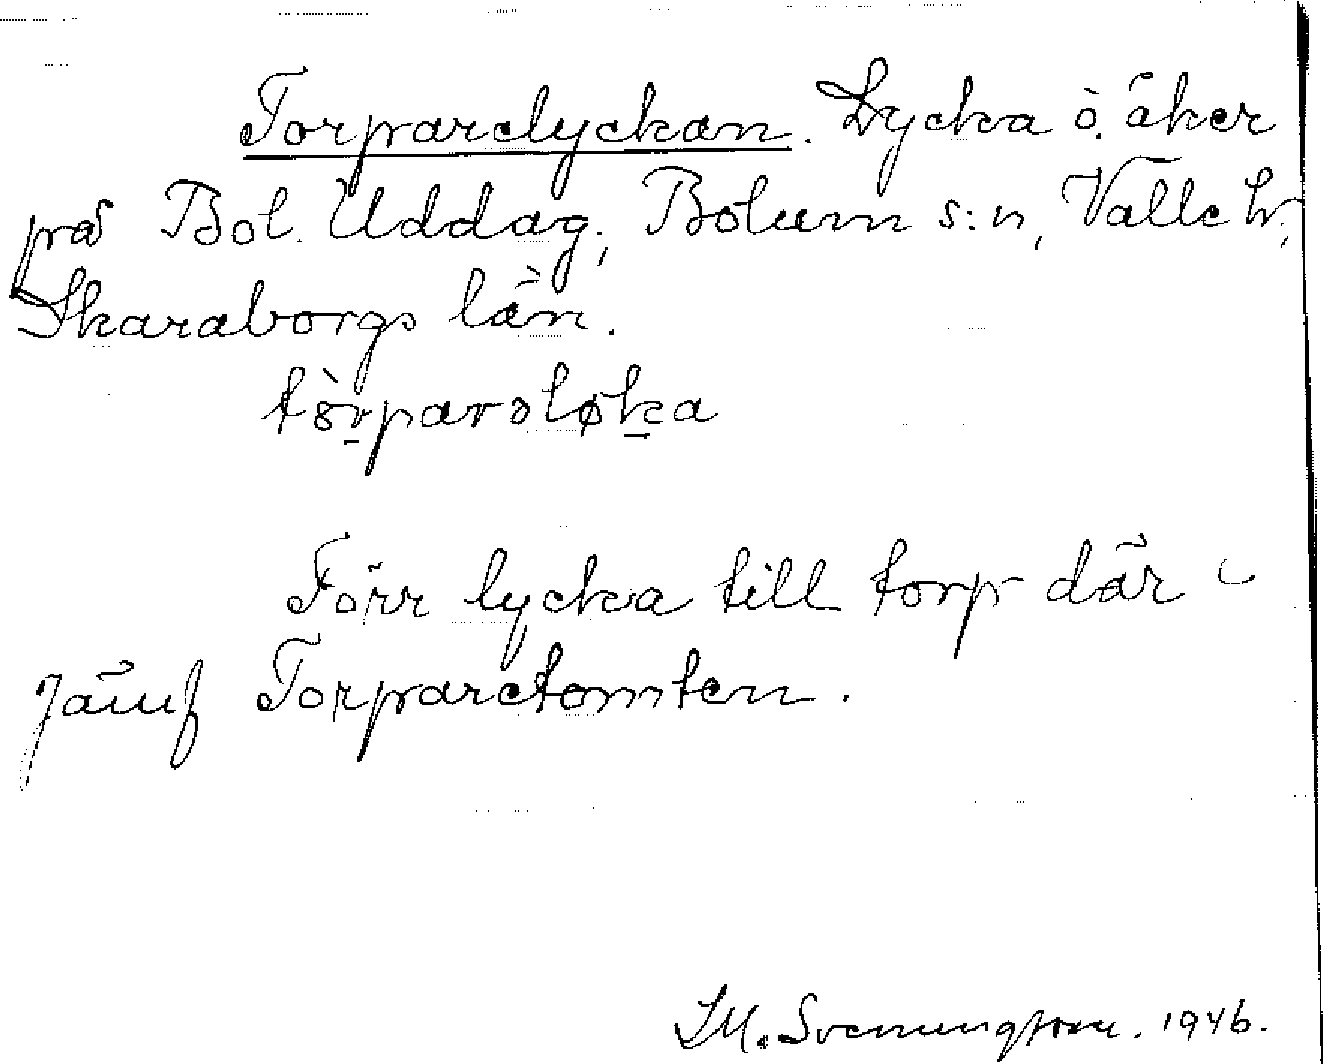 Torparelyckan. Lycka ö. åker
på Bol. Uddag., Bolum s:n, Valle hr,
Skaraborgs län.
Förr lycka till torp där
Jämf Torparetomten.
1946.